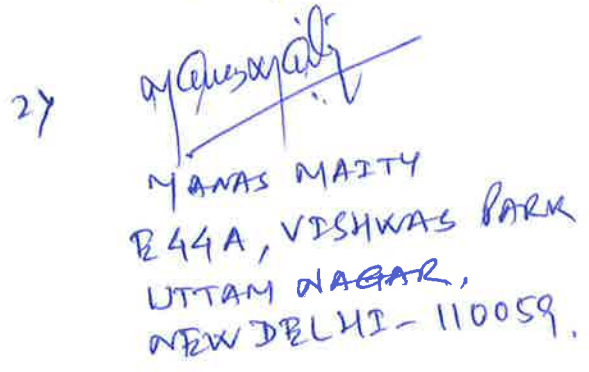 2)
MANAS MAITY
E44A, VISHWAS PARK
UTTAM NAGAR,
NEW DELHI - 110059.